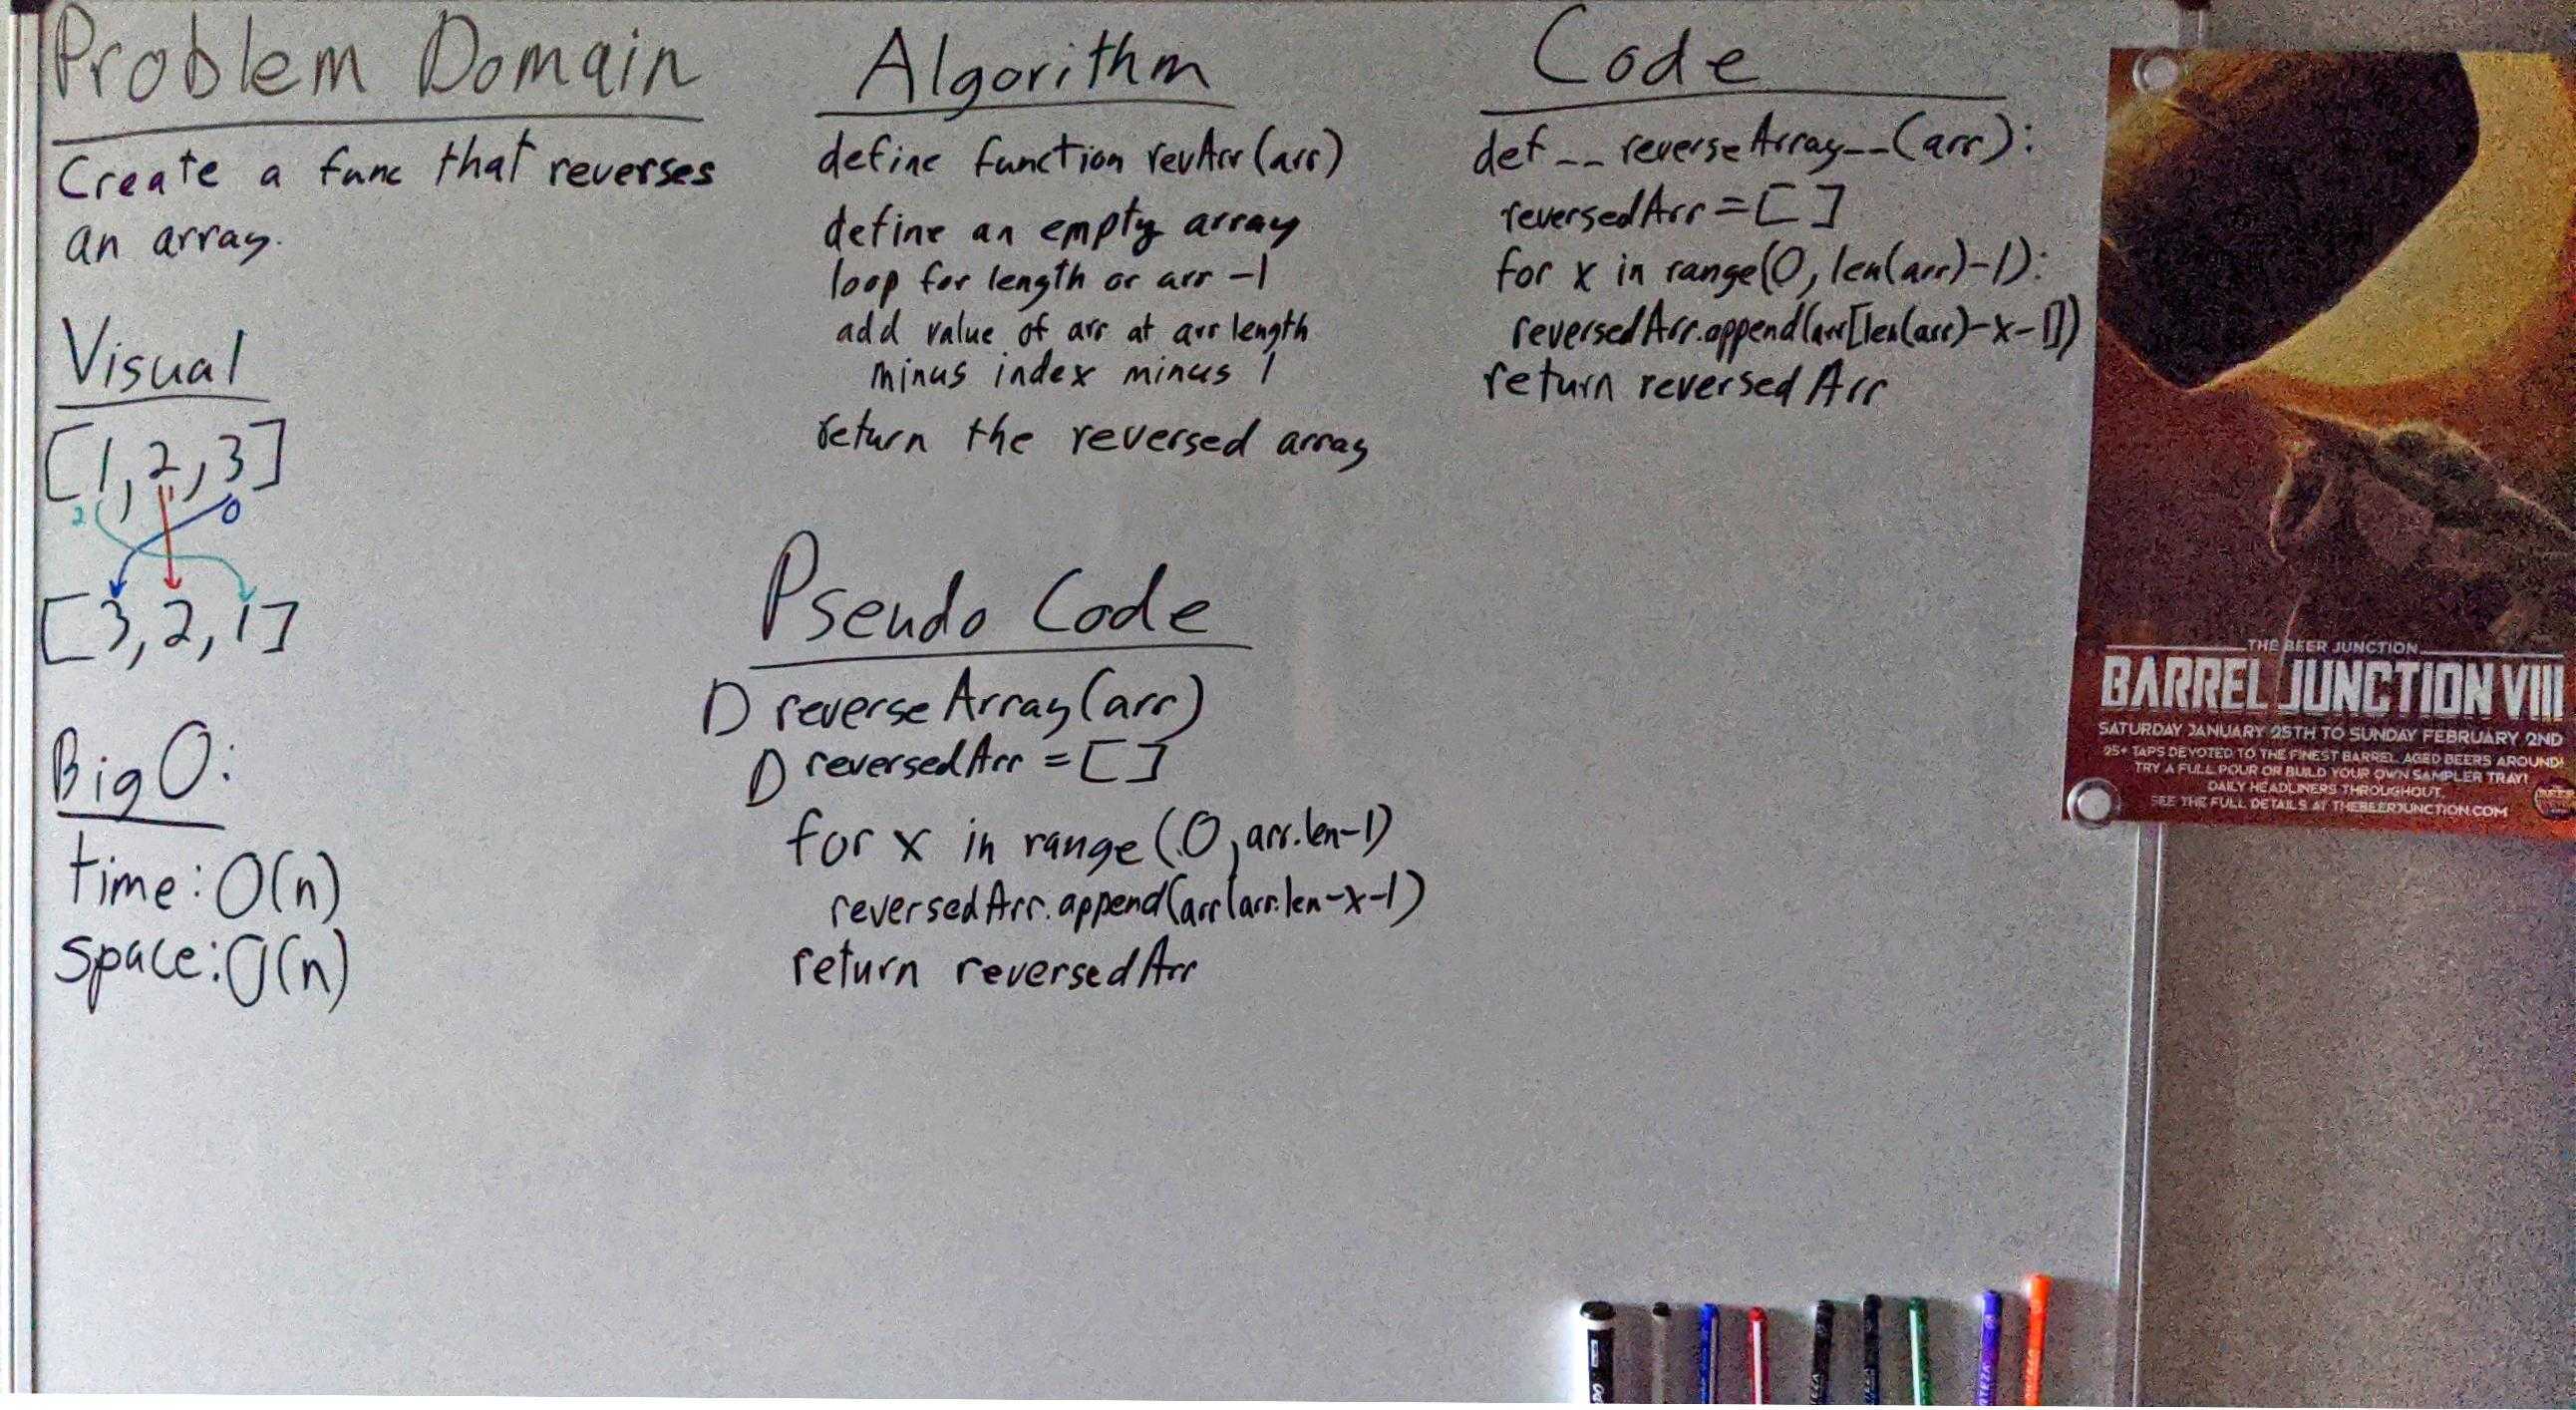 Problem Domain
Create a func that reverses
an array.
Visual
[1,2,3]
2 1 0
[3,2,1]
Big O:
time: O(n)
space: O(n)
Algorithm
define function revArr(arr)
define an empty array
loop for length or arr -1
add value of arr at arr length
minus index minus 1
return the reversed array
Pseudo Code
D reverseArray(arr)
D reversedArr = []
for x in range (0, arr.len-1)
reversedArr.append(arr(arr.len-x-1)
return reversedArr
Code
def __reverseArray__(arr):
reversedArr = []
for x in range(0, len(arr)-1):
reversedArr.append(arr[len(arr)-x-1])
return reversedArr
THE BEER JUNCTION
BARREL JUNCTION VIII
SATURDAY JANUARY 25TH TO SUNDAY FEBRUARY 2ND
25+ TAPS DEVOTED TO THE FINEST BARREL AGED BEERS AROUND!
TRY A FULL POUR OR BUILD YOUR OWN SAMPLER TRAY!
DAILY HEADLINERS THROUGHOUT.
SEE THE FULL DETAILS AT THEBEERJUNCTION.COM